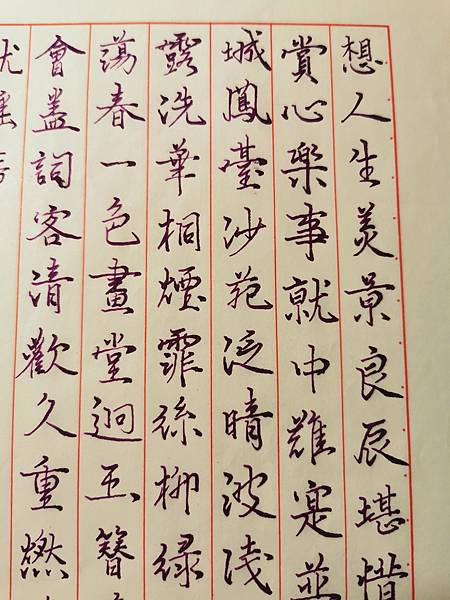 想人生美景良辰堪惜
賞心樂事就中難寔並
城鳳臺沙苑泛晴波淺
露洗華桐煙霏絲柳緑
蕩春一色畫堂迥玉簪
會盡詞客清歡久重燃